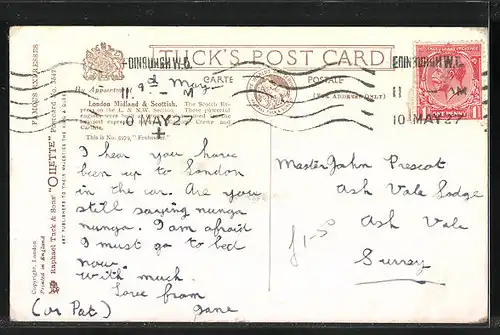 TUCK'S POST CARD
CARTE POSTALE
EDINBURGH W.C.
11 - AM
10 MAY 27
EDINBURGH W.C.
11 - AM
10 MAY 27
9th May
By Appointment
London Midland & Scottish.
(on the L. & N.W. Section).
The Scotch Express
These powerful
engines were
Crewe and
Carlisle.
This is No. "Fearless."
(FOR ADDRESS ONLY)
FAMOUS EXPRESSES
Raphael Tuck & Sons' "OILETTE" Postcard No.
ART PUBLISHERS TO THEIR MAJESTIES THE KING & QUEEN
Copyright, London
Printed in England
ONE PENNY
I hear you have
been up to London
in the car. Are you
still saying nunga
nunga. I am afraid
I must go to bed
now.
With much
love from
Jane
(or Pat)
Master John Prescot
Ash Vale Lodge
Ash Vale
Surrey
£1-50